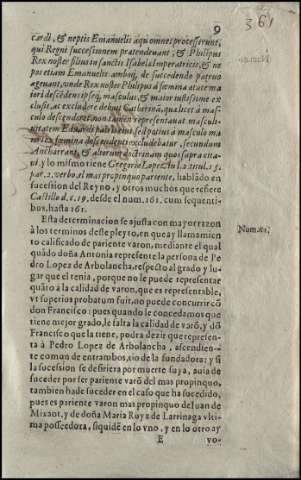 9
361
cardi, & neptis Emanuelis à qui omnes processerunt,
qui Regni successionem prætendeuant, & Philipus
Rex noster filius in sanctis Isabela Imperatricis, & ne
pos etiam Emanuelis ambo, de succedendo patruo
ageuant, vnde Rex noster Philipus à fœmina et ate ma
iori descẽdens ipse, masculus, & maior iustissime ex
clusit, ac excludere debuit Catherina, qualicet à mascu
lo descenderet, non tamen representauat masculi-
nitatem Eduardi patris eius, sed potius à masculo ma
iori, fœmina descendens excludebatur, secundum
Ancharran. & aliorum doctrinam quos supra cita
ui, y lo mismo tiene Gregorio Lopez in l. 2. titul. 15.
par. 2. verbo el mas propinquo pariente, hablãdo en
sucession del Reyno, y otros muchos que refiere
Castillo d. c. 19, desde el num. 161. cum sequenti-
bus, hasta 161.
Esta determinacion se ajusta con mayor razon
à los terminos deste pleyto, en que ay llamamien
to calificado de pariente varon, mediante el qual
quãdo doña Antonia represente la persona de Pe
dro Lopez de Arbolancha, respecto al grado y lu-
gar que el tenia, porque no le puede representar
quãto à la calidad de varon, que es representable,
vt superius probatum fuit, no puede concurrir cõ
don Francisco: pues quando le concedamos que
tiene mejor grado, le falta la calidad de varõ, y dõ
Francisco que la tiene, podra dezir que represen-
ta à Pedro Lopez de Arbolancha, ascendien-
te comun de entrambos, tio de la fundadora: y si
la sucession se defiriera por muerte suya, auia de
suceder por ser pariente varõ del mas propinquo,
tambien ha de suceder en el caso que ha sucedido,
pues es pariente varon mas propinquo del Iuan de
Mixaot, y de doña Maria Roys de Larrinaga vlti-
ma posseedora, siquidẽ en lo vno, y en lo otro ay
E
vo-